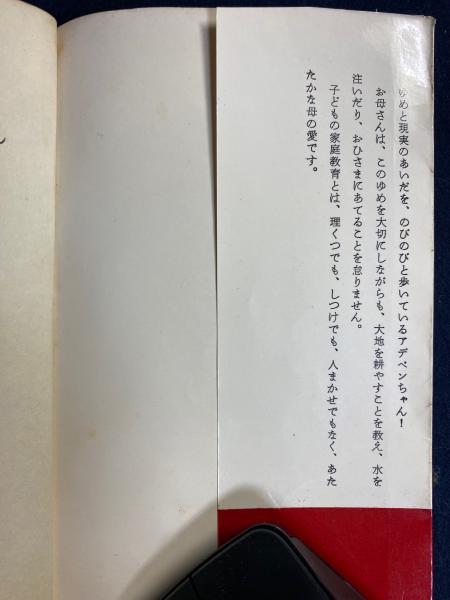 ゆめと現実のあいだを、のびのびと歩いているアデペンちゃん！
お母さんは、このゆめを大切にしながらも、大地を耕やすことを教え、水を
注いだり、おひさまにあてることを怠りません。
子どもの家庭教育とは、理くつでも、しつけでも、人まかせでもなく、あた
たかな母の愛です。